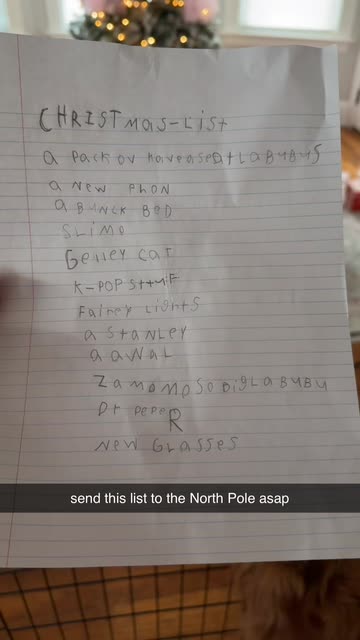 CHRISTmas-LisT
a Pack ov haveaseat LaBuBuS
a New PhoN
a BuNck BeD
SLiMe
Gelley Cat
K-POP Stuf
Fairey LightS
a StaNLEY
a awaL
ZamomoSo BigLaBuBu
Dr PePeR
New GLasses
send this list to the North Pole asap